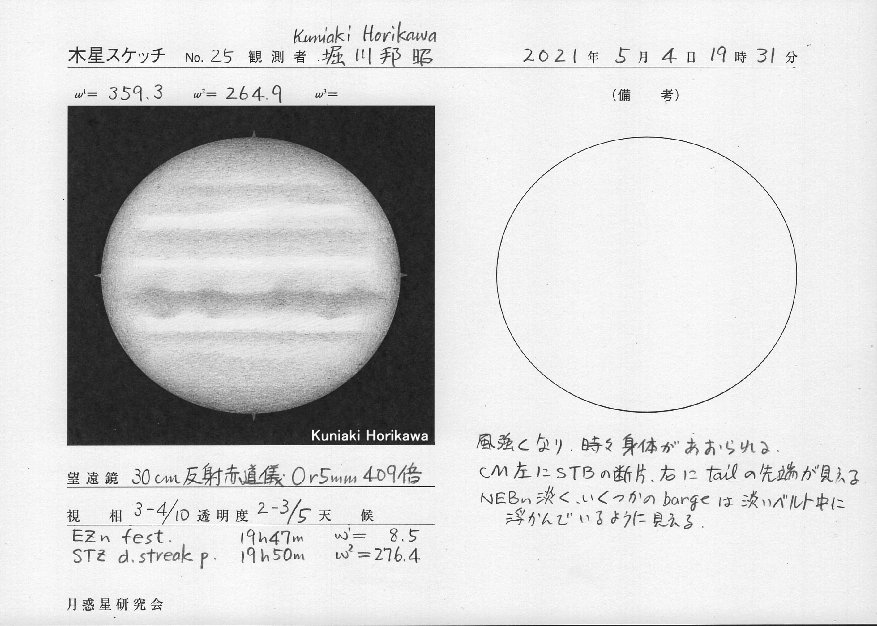 Kuniaki Horikawa
木星スケッチ No. 25 観測者 堀川邦昭 2021年 5月 4日 19時 31分
ω¹= 359.3 ω²= 264.9 ω³=
(備 考)
Kuniaki Horikawa
風強くなり、時々身体があおられる.
CM左にSTBの断片、右にtailの先端が見える
NEBn淡く、いくつかのbargeは淡いベルト中に
浮かんでいるように見える.
望遠鏡 30cm反射赤道儀 Or5mm 409倍
視 相 3-4/10 透明度 2-3/5 天 候
EZn fest. 19h47m ω¹= 8.5
STZ d.streak p. 19h50m ω²=276.4
月惑星研究会